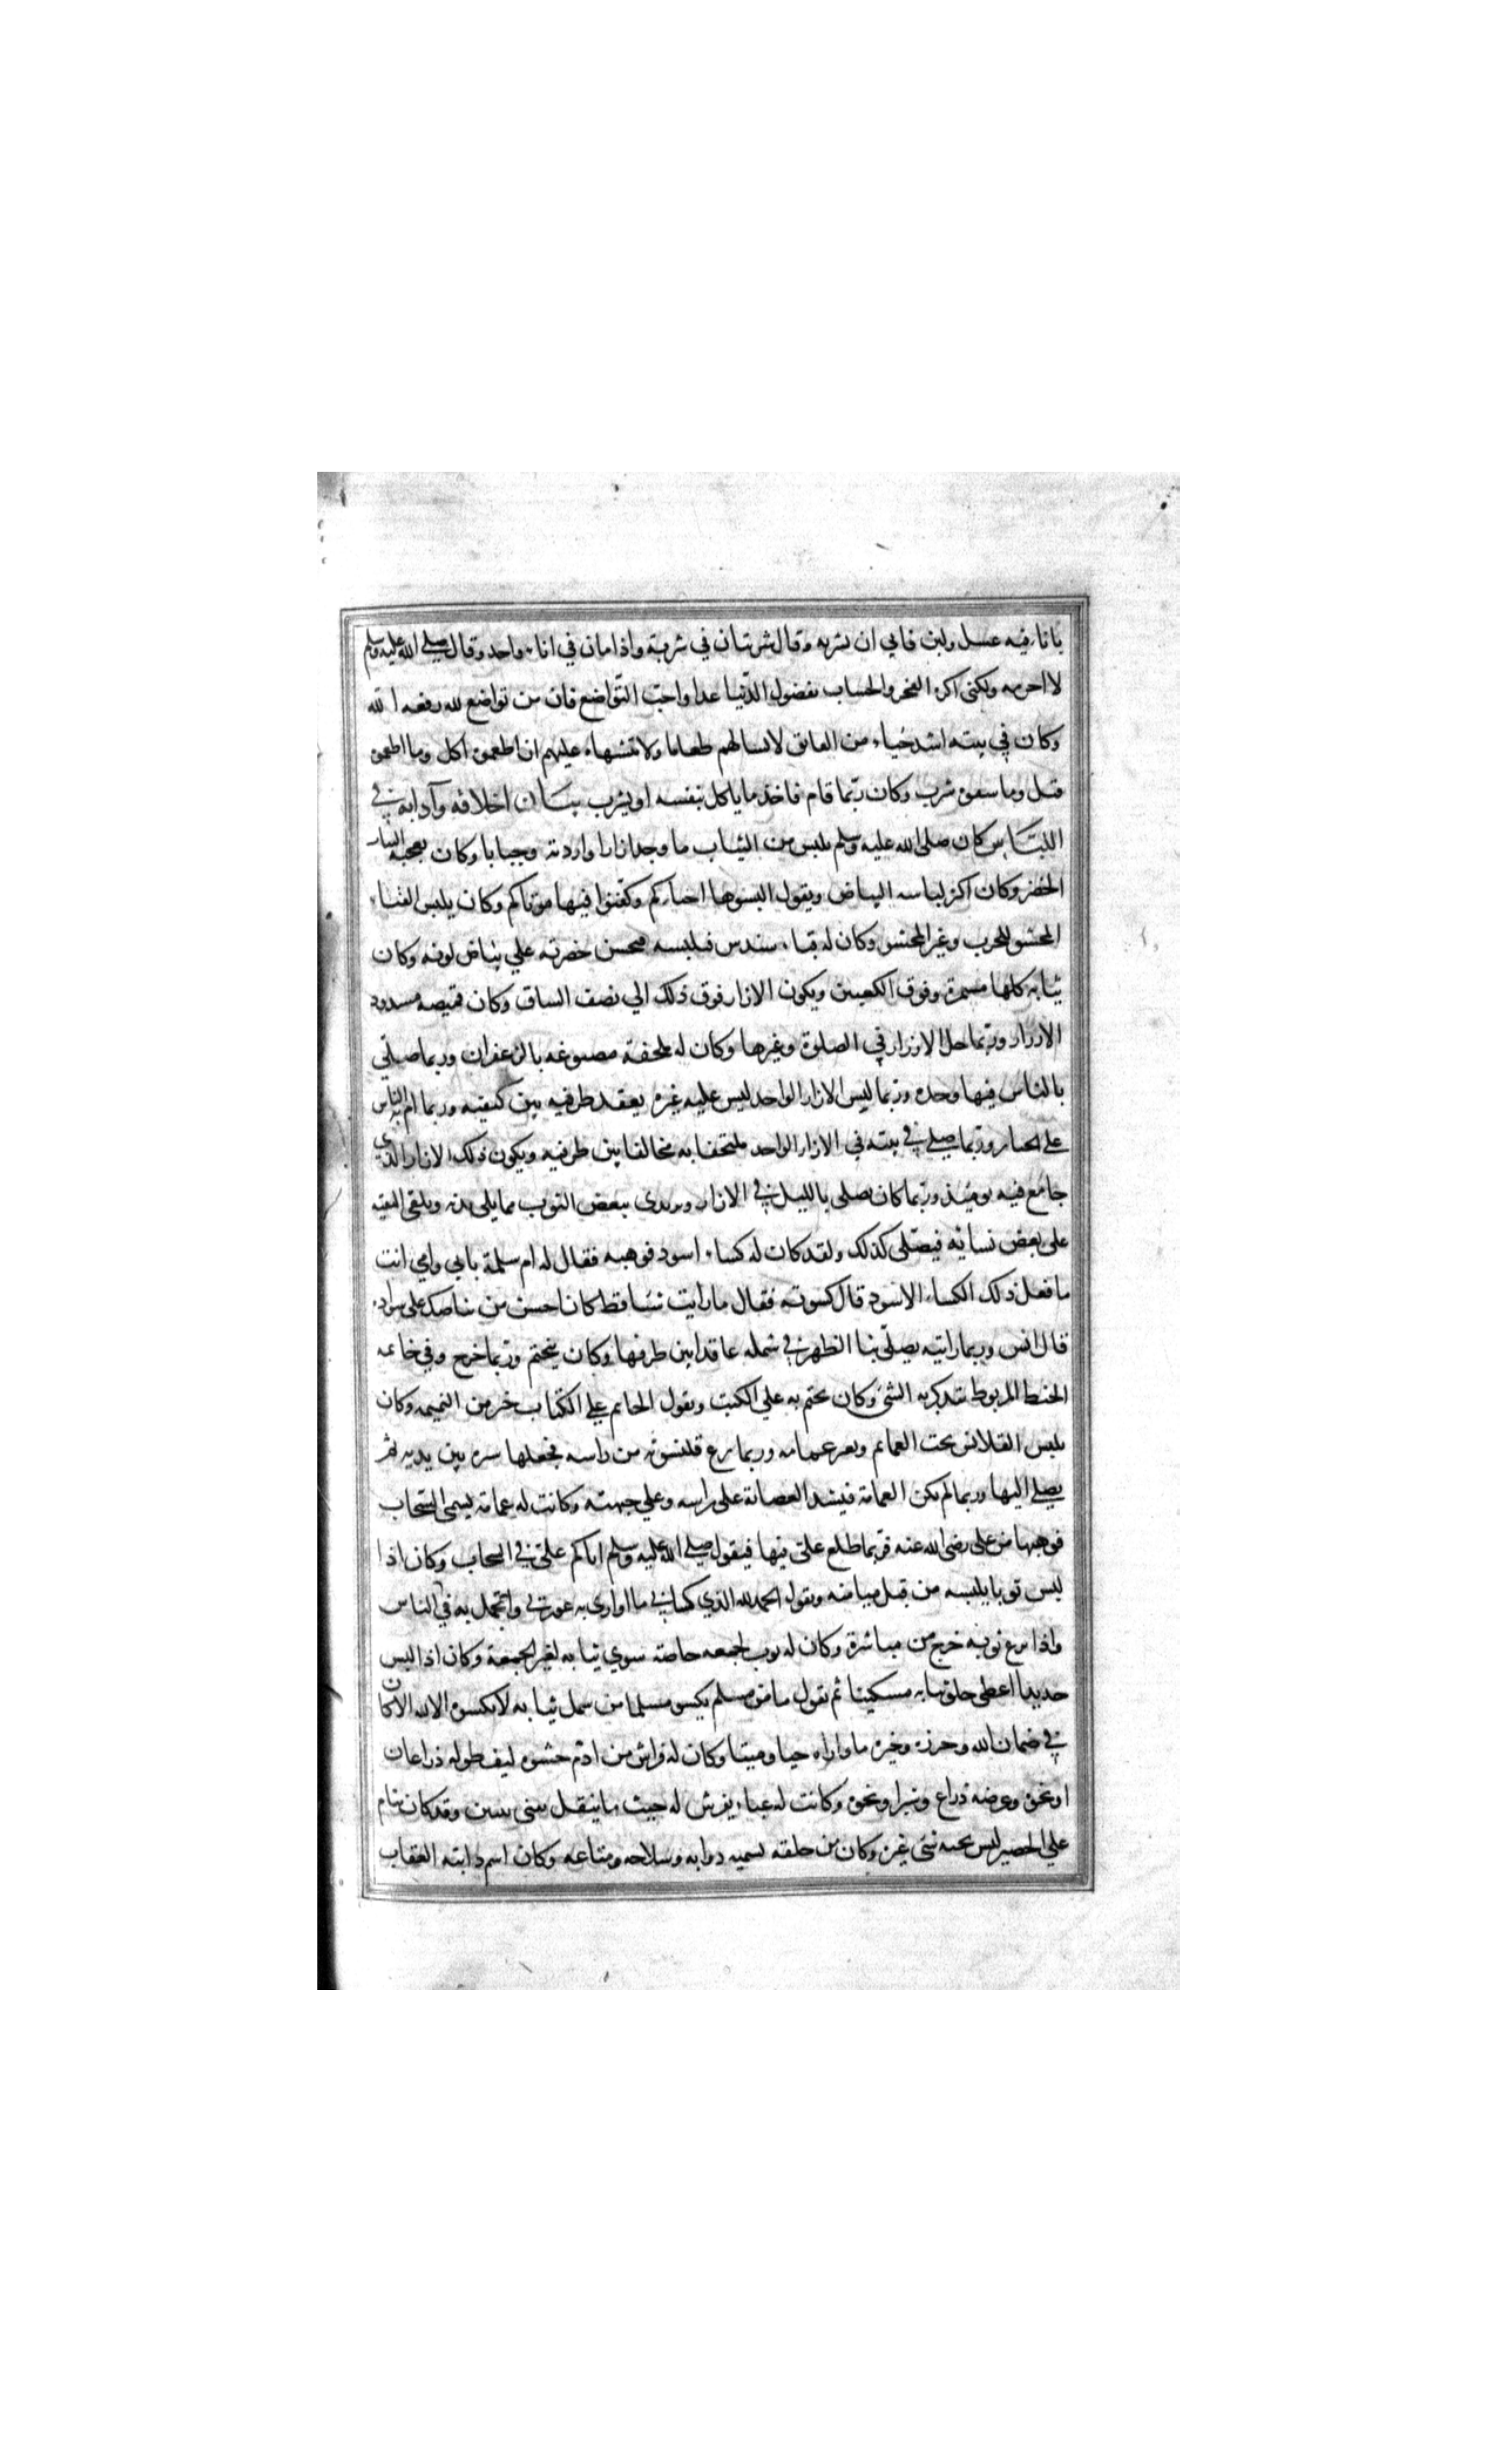 باناء فيه عسل ولبن فابي ان يشربه وقال شربتان في شربة واذامان في اناء واحد وقال صلى الله عليه وسلم
لا احرمه ولكنى اكره الفخر والحساب بفضول الدنيا غدا واحب التواضع فان من تواضع لله رفعه الله
وكان في بيته اشد حياء من العاتق لا يسالهم طعاما ولا يتشهاه عليهم ان اطعموه اكل وما اطعموه
قبل وما سقوه شرب وكان ربما قام فاخذ ما ياكل بنفسه او يشرب بيان اخلاقه وآدابه في
اللباس كان صلى الله عليه وسلم يلبس من الثياب ما وجد ازارا واردية وجبابا وكان يعجبه الثياب
الخضر وكان اكثر لباسه البياض ويقول البسوها احياركم وكفنوا فيها موتاكم وكان يلبس القباء
المحشو للحرب وغير المحشو وكان له قباء سندس فيلبسه فيحسن خضرته علي بياض لونه وكان
ثيابه كلها مشمرة وفوق الكعبين ويكون الازار فوق ذلك الي نصف الساق وكان قميصه مسدود
الازرار وربما حل الازرار في الصلوة وغيرها وكان له ملحفة مصبوغه بالزعفران وربما صلي
بالناس فيها وحده وربما لبس الازار الواحد ليس عليه غيره يعقد طرفيه بين كتفيه وربما ام به الناس
على الجنايز وربما صلى في بيته في الازار الواحد ملتحفا به مخالفا بين طرفيه ويكون ذلك الازار الذي
جامع فيه يوميذ وربما كان يصلى بالليل في الازار ويرتدى ببعض الثوب مما يلى هدبه ويلقى البقيه
على بعض نسائه فيصلى كذلك ولقد كان له كساء اسود فوهبه فقال له ام سلمة بابي وامي انت
ما فعل ذلك الكساء الاسود قال كسوته فقال ما رايت شيا قط كان احسن من بياضك على سواده
قال انس وربما رايته يصلى بنا الظهر في شمله عاقدا بين طرفها وكان يتختم وربما خرج وفي خاتمه
الخيط المربوط يتذكر به الشئ وكان يختم به علي الكتب ويقول الخاتم علي الكتاب خير من التهمه وكان
يلبس القلانس تحت العمايم وبغير عمامه وربما نزع قلنسوته من راسه فجعلها ستره بين يديه ثم
يصلى اليها وربما لم يكن العمامة فيشد العصابة على راسه وعلي جبهته وكانت له عمامة يسمى السحاب
فوهبها من على رضى الله عنه فربما طلع على فيها فيقول صلى الله عليه وسلم اتاكم على في السحاب وكان اذا
لبس ثوبا يلبسه من قبل ميامنه ويقول الحمد لله الذي كساني ما اوارى به عورتي واتجمل به في الناس
واذا نزع ثوبه خرج من مياسره وكان له ثوب لجمعه خاصة سوي ثيابه لغير الجمعة وكان اذا لبس
جديدا اعطى خلق ثيابه مسكينا ثم يقول ما من مسلم يكسو مسلما من سمل ثيابه لا يكسوه الا لله الا كان
في ضمان الله وحرزه وخيره ما واراه حيا وميتا وكان له فراش من ادم حشوه ليف طوله ذراعان
او نحوه وعرضه ذراع وشبر او نحوه وكانت له عباء يفرش له حيث ما ينتقل يثنى ثنيين وقد كان ينام
علي الحصير ليس تحته شئ غيره وكان من خلقه تسميه دوابه وسلاحه ومتاعه وكان اسم دابته العقاب